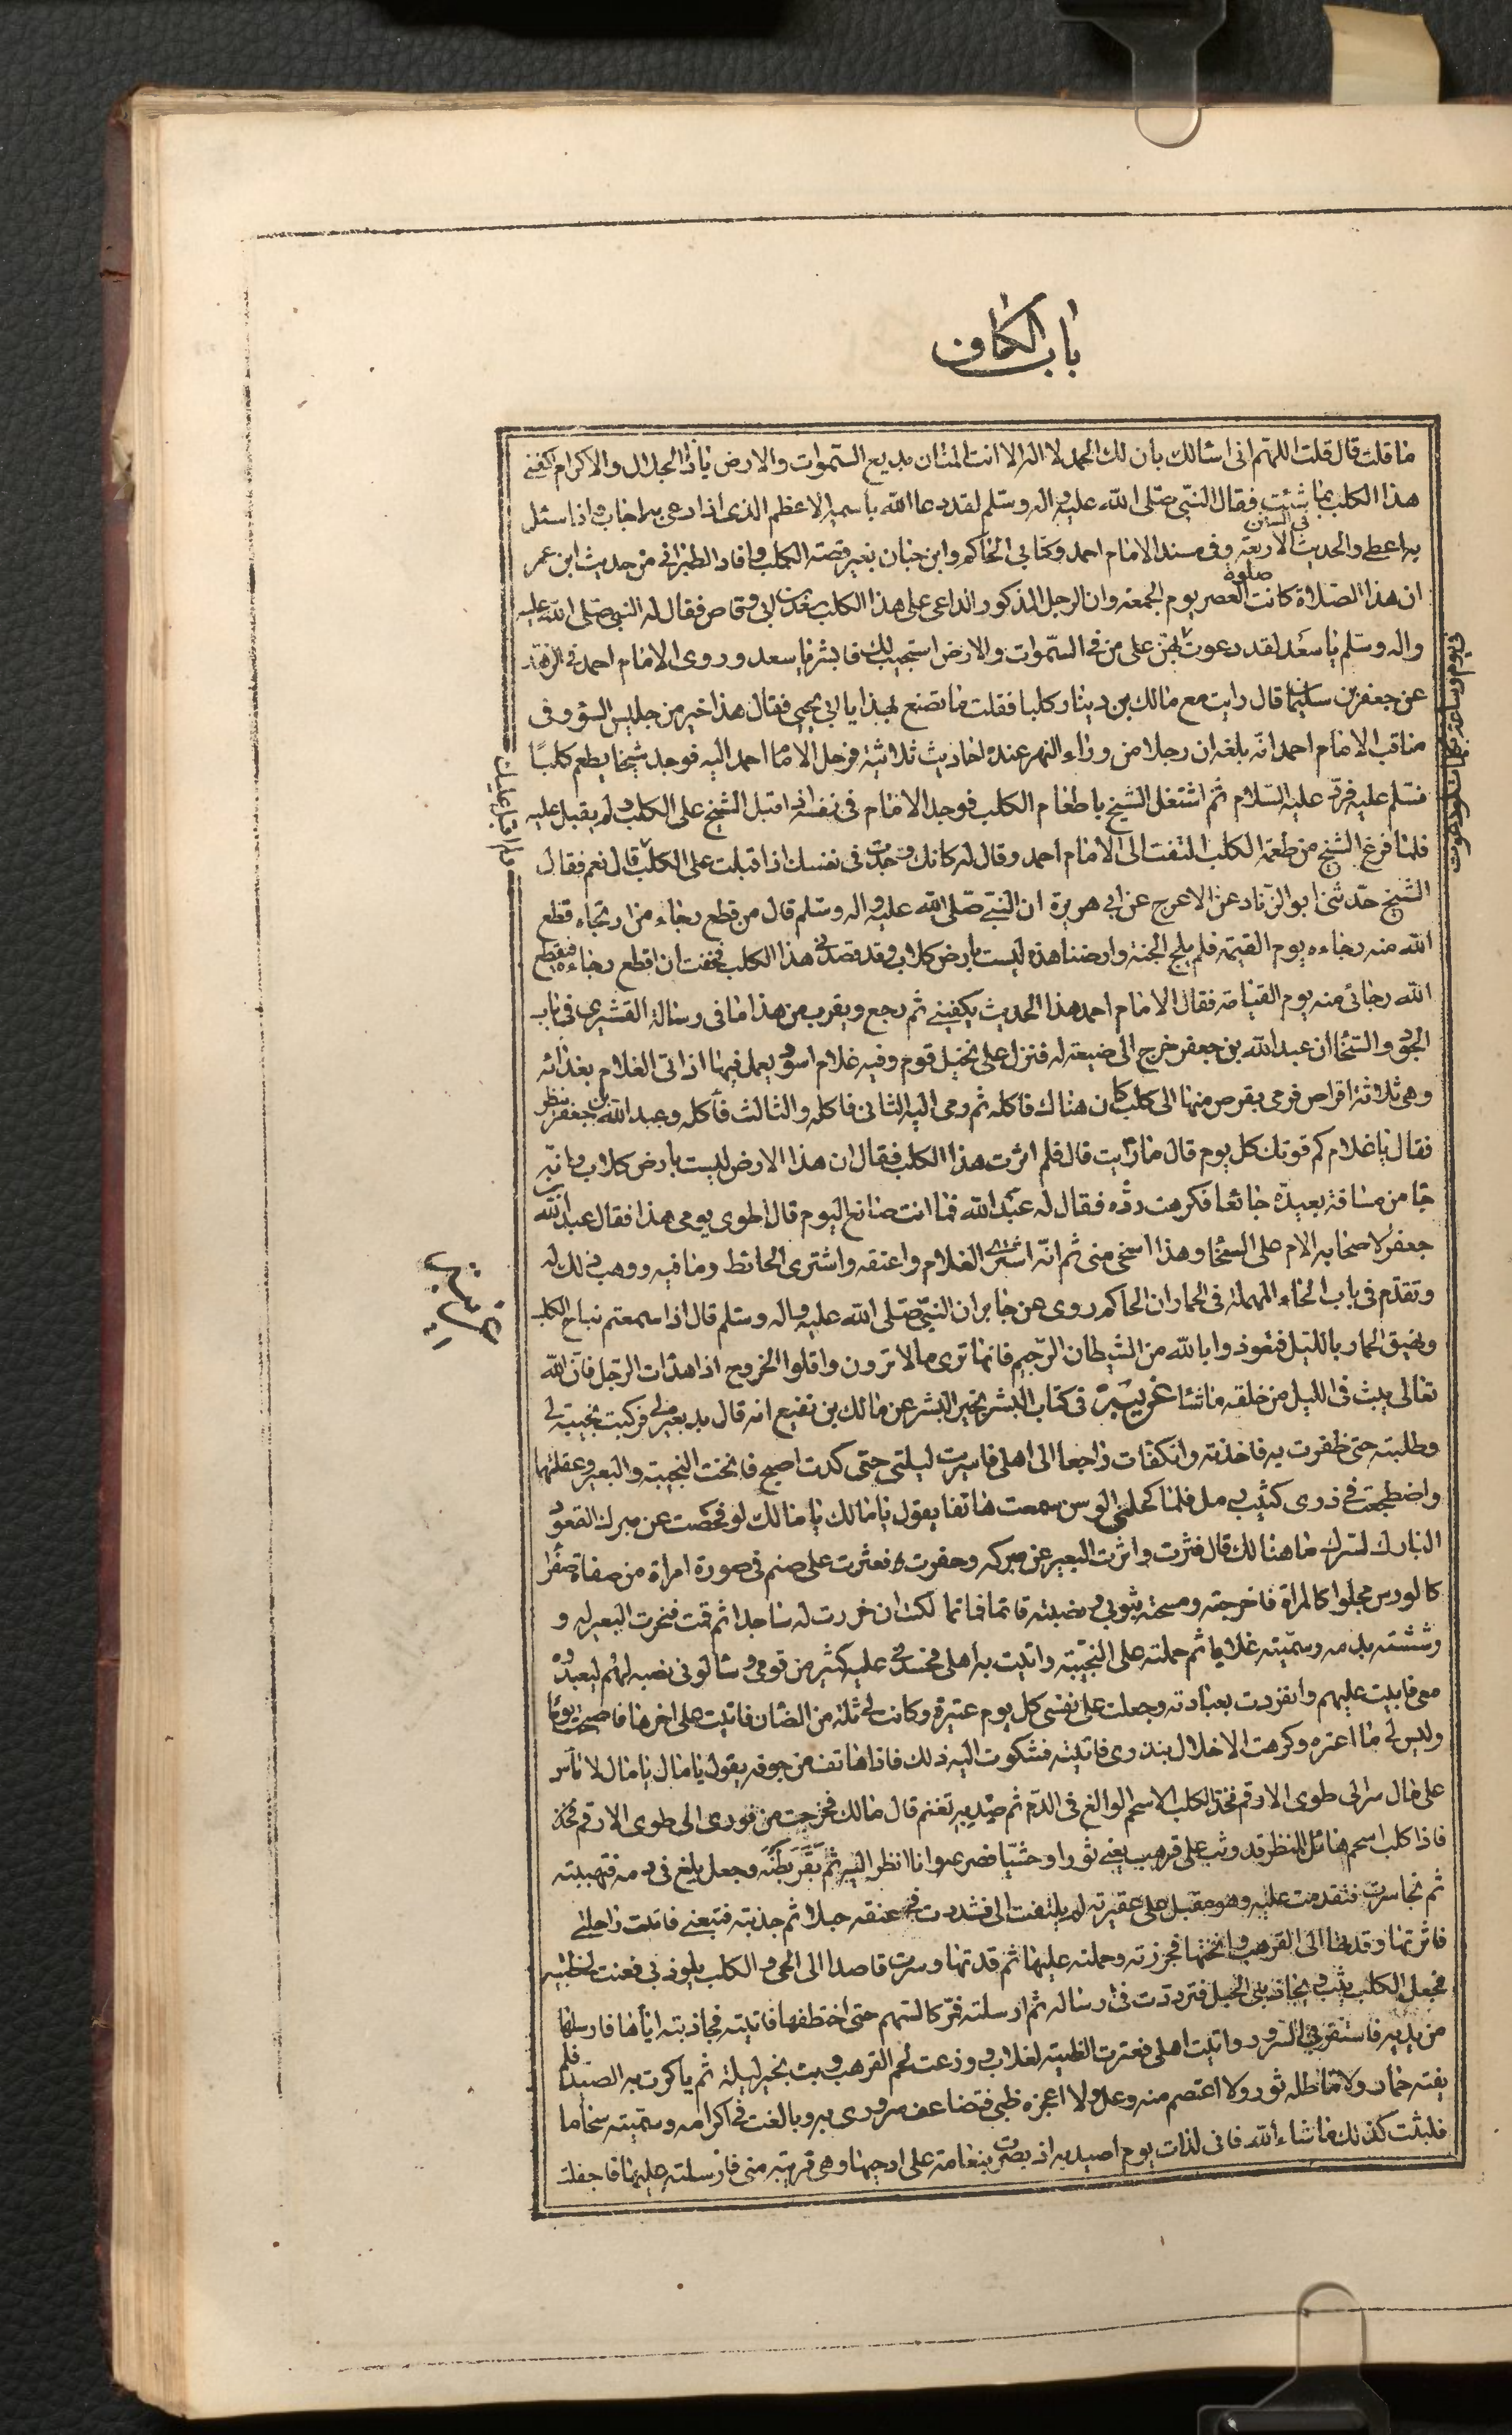 باب الكاف
ما قلت قال قلت اللهم انى اسالك بان لك الحمد لا اله الا انت المنان بديع السموات والارض يا ذا الجلال والاكرام اكفنى
هذا الكلب بما شئت فقال النبى صلى الله عليه واله وسلم لقد دعا الله باسمه الاعظم الذى اذا دعى به اجاب واذا سئل
به اعطى والحديث فى السنن الاربعة وفى مسند الامام احمد وكتابى الحاكم وابن حبان بغير قصة الكلب وافاد الطبرانى من حديث ابن عمر
ان هذا الصلاة كانت صلوة العصر يوم الجمعة وان الرجل المذكور الداعى على هذا الكلب سعد بن ابى وقاص فقال له النبى صلى الله عليه
واله وسلم يا سعد لقد دعوت بهن على من فى السموات والارض استجيب لك فابشر يا سعد وروى الامام احمد فى الزهد
فى يوم وساعة بكلمات لو دعوت
عن جعفر بن سليمان قال رايت مع مالك بن دينار كلبا فقلت ما تصنع بهذا يا ابا يحيى فقال هذا خير من جليس السوء وفى
مناقب الامام احمد انه بلغه ان رجلا من وراء النهر عنده احاديث ثلاثية فرحل الاما احمد اليه فوجد شيخا يطعم كلبًا
فسلم عليه فرد عليه السلام ثم اشتغل الشيخ باطعام الكلب فوجد الامام فى نفسه اذ اقبل الشيخ على الكلب ولم يقبل عليه
فلما فرغ الشيخ من طعمة الكلب التفت الى الامام احمد وقال له كانك وجدت فى نفسك اذ اقبلت على الكلب قال نعم فقال
ولم اقبل عليك
الشيخ حدثنى ابو الزناد عن الاعرج عن ابى هريرة ان النبى صلى الله عليه واله وسلم قال من قطع رجاء من ارتجاه قطع
الله منه رجاءه يوم القيمة فلم يلج الجنة وارضنا هذه ليست بارض كلاب وقد قصدنى هذا الكلب فخفت ان اقطع رجاءه فيقطع
الله رجائى منه يوم القيامة فقال الامام احمد هذا الحديث يكفينى ثم رجع ويقرب من هذا ما فى رسالة القشيرى فى باب
الجود والسخا ان عبد الله بن جعفر خرج الى ضيعة له فنزل على نخيل قوم وفيه غلام اسود يعمل فيها اذ اتى الغلام بغذائه
وهى ثلاثة اقراص فرمى بقرص منها الى كلب كان هناك فاكله ثم رمى اليه الثانى فاكله والثالث فاكله وعبد الله بن جعفر ينظر
فقال يا غلام كم قوتك كل يوم قال ما رايت قال فلم اثرت هذا الكلب فقال ان هذا الارض ليست بارض كلاب وانه
جا من مسافة بعيدة جائعا فكرهت رده فقال له عبد الله فما انت صانع اليوم قال اطوى يومى هذا فقال عبد الله بن
جعفر لاصحابه الام على السخا وهذا اسخى منى ثم انه اشترى الغلام واعتقه واشترى الحائط وما فيه ووهب ذلك له
وتقدم فى باب الحاء المهملة فى الحمار ان الحاكم روى عن جابر ان النبى صلى الله عليه واله وسلم قال اذا سمعتم نباح الكلب
ونهيق الحمار بالليل فتعوذوا بالله من الشيطان الرجيم فانها ترى مالا ترون واقلوا الخروج اذا هدات الرجل فان الله
تعالى يبث فى الليل من خلقه ما شئا غريبة فى كتاب البشر بخير البشر عن مالك بن نفيع انه قال ند بعير لى فركبت نجيبة لى
وطلبته حتى ظفرت به فاخذته وانكفات راجعا الى اهلى فاسريت ليلتى حتى كدت اصبح فانخت النجيبة والبعير وعقلتهما
واضطجعت فى ذرى كثيب رمل فلما كحلنى الوسن سمعت هاتفا يقول يا مالك يا مالك لو فحصت عن مبرك القعود
البارك لسرك ما هنالك قال فثرت واثرت البعير عن مبركه وحفرت فعثرت على صنم فى صورة امراة من صفاة صفرا
كالورس مجلوا كالمراة فاخرجته ومسحته بثوبى ونصبته قائما فما تمالكت ان خررت له ساجدا ثم قمت فنحرت البعير له و
رششته بدمه وسميته غلابا ثم حملته على النجيبة واتيت به اهلى فحسدنى عليه كثير من قومى وسالونى نصبه لهم ليعبدوه
معى فابيت عليهم وانفردت بعبادته وجعلت على نفسى كل يوم عتيرة وكانت لى ثلة من الضان فاتيت على اخرها فاصبحت يوما
وليس لى ما اعتره وكرهت الاخلال بنذرى فاتيته فشكوت اليه ذلك فاذا هاتف من جوفه يقول يا مال يا مال لا تأس
على مال سر الى طوى الارقم فخذ الكلب الاسحم الوالغ فى الدم ثم صد به تغنم قال مالك فخرجت من فورى الى طوى الارقم
فاذا كلب اسحم هائل المنظر قد وثب على قرهب يعنى ثورا وحشيا فصرعه وانا انظر اليه ثم بقر بطنه وجعل يلغ فى دمه فتهيبته
ثم تجاسرت فتقدمت عليه وهو مقبل على عقيرته لم يلتفت الى فشددت فى عنقه حبلا ثم جذبته فتبعنى فاتيت راحلتى
فاثرتها وقدتها الى القرهب وانختها فجزرته وحملته عليها ثم قدتها وسرت قاصدا الى الحى والكلب يلوذ بى فعنت لى ظبية
فجعل الكلب يثب ويجاذبنى الحبل فترددت فى ارساله ثم ارسلته فمر كالسهم حتى اختطفها فاتيته فجاذبته اياها فارسلها
من يديه فاستفزنى السرور واتيت اهلى فعترت الظبية لغلاب ووزعت لحم القرهب وبت بخير ليلة ثم باكرت به الصيد فلم
يفته حمار ولا ماطله ثور ولا اعتصم منه وعل ولا اعجزه ظبى فتضاعف سرورى به وبالغت فى اكرامه وسميته سحاما
فلبثت كذلك ما شاء الله فانى لذات يوم اصيد به اذ بصرت بنعامة على ادحيها وهى قريبة منى فارسلته عليها فاجفلت
غريبة